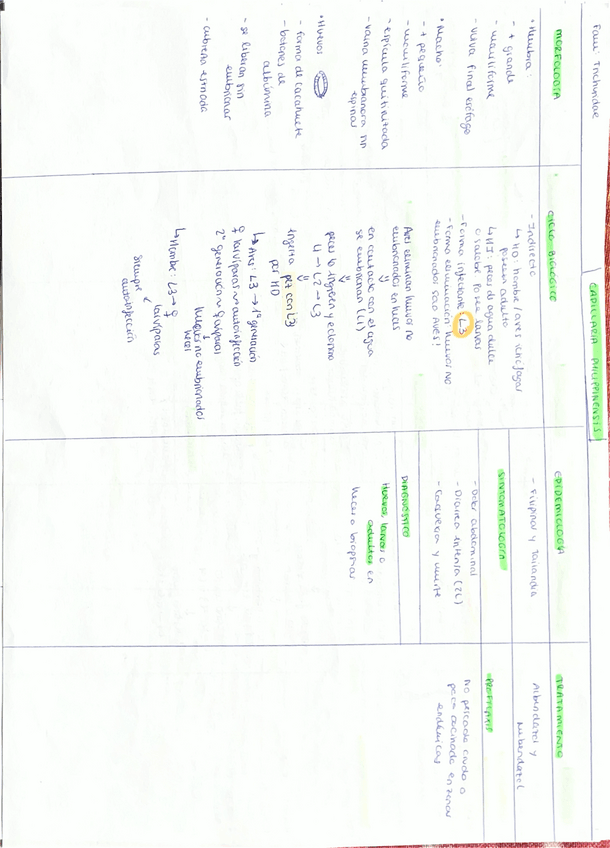 Fam: Trichuridae
CAPILLARIA PHILIPPINENSIS
MORFOLOGÍA
• Hembra:
- + grande
- musculiforme
- vulva final esófago
• Macho:
- + pequeño
- musculiforme
- espícula quitinizada
- vaina membranosa sin
espinas
• Huevos
- forma de cacahuete
- botones de
albúmina
- se liberan sin
embrionar
- cubierta estriada
CICLO BIOLÓGICO
- Indirecto
↳ HD: hombre / aves ictiófagas
poseen adulto
↳ HI: peces de agua dulce
o salobre poseen larvas
- Forma infectante: L3
- Forma eliminación huevos no
embrionados solo AVES!
Aves eliminan huevos no
embrionados en heces
en contacto con el agua
se embrionan (L1)
peces lo ingieren y eclosiona
L1 → L2 → L3
Ingesta pez con L3
por HD
↳ Aves: L3 → 1ª generación
♀ larvíparas → autoinfección
2ª generación ♀ ovíparas
↓
huevos no embrionados
heces
↳ Hombre: L3 → ♀
larvíparas
↓
Siempre
autoinfección
EPIDEMIOLOGÍA
- Filipinas y Tailandia
SINTOMATOLOGÍA
- Dolor abdominal
- Diarrea intensa (2L)
- Caquexia y muerte
DIAGNÓSTICO
Huevos, larvas o
adultos en
heces o biopsias
TRATAMIENTO
Albendazol y
mebendazol
PROFILAXIS
No pescado crudo o
poco cocinado en zonas
endémicas